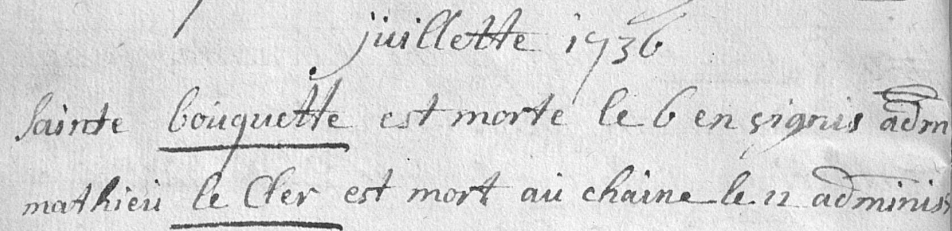 juillette 1736
Sainte bouquette est morte le 6 en çignis adm
mathieu le Cler est mort au chaine le 22 adminis